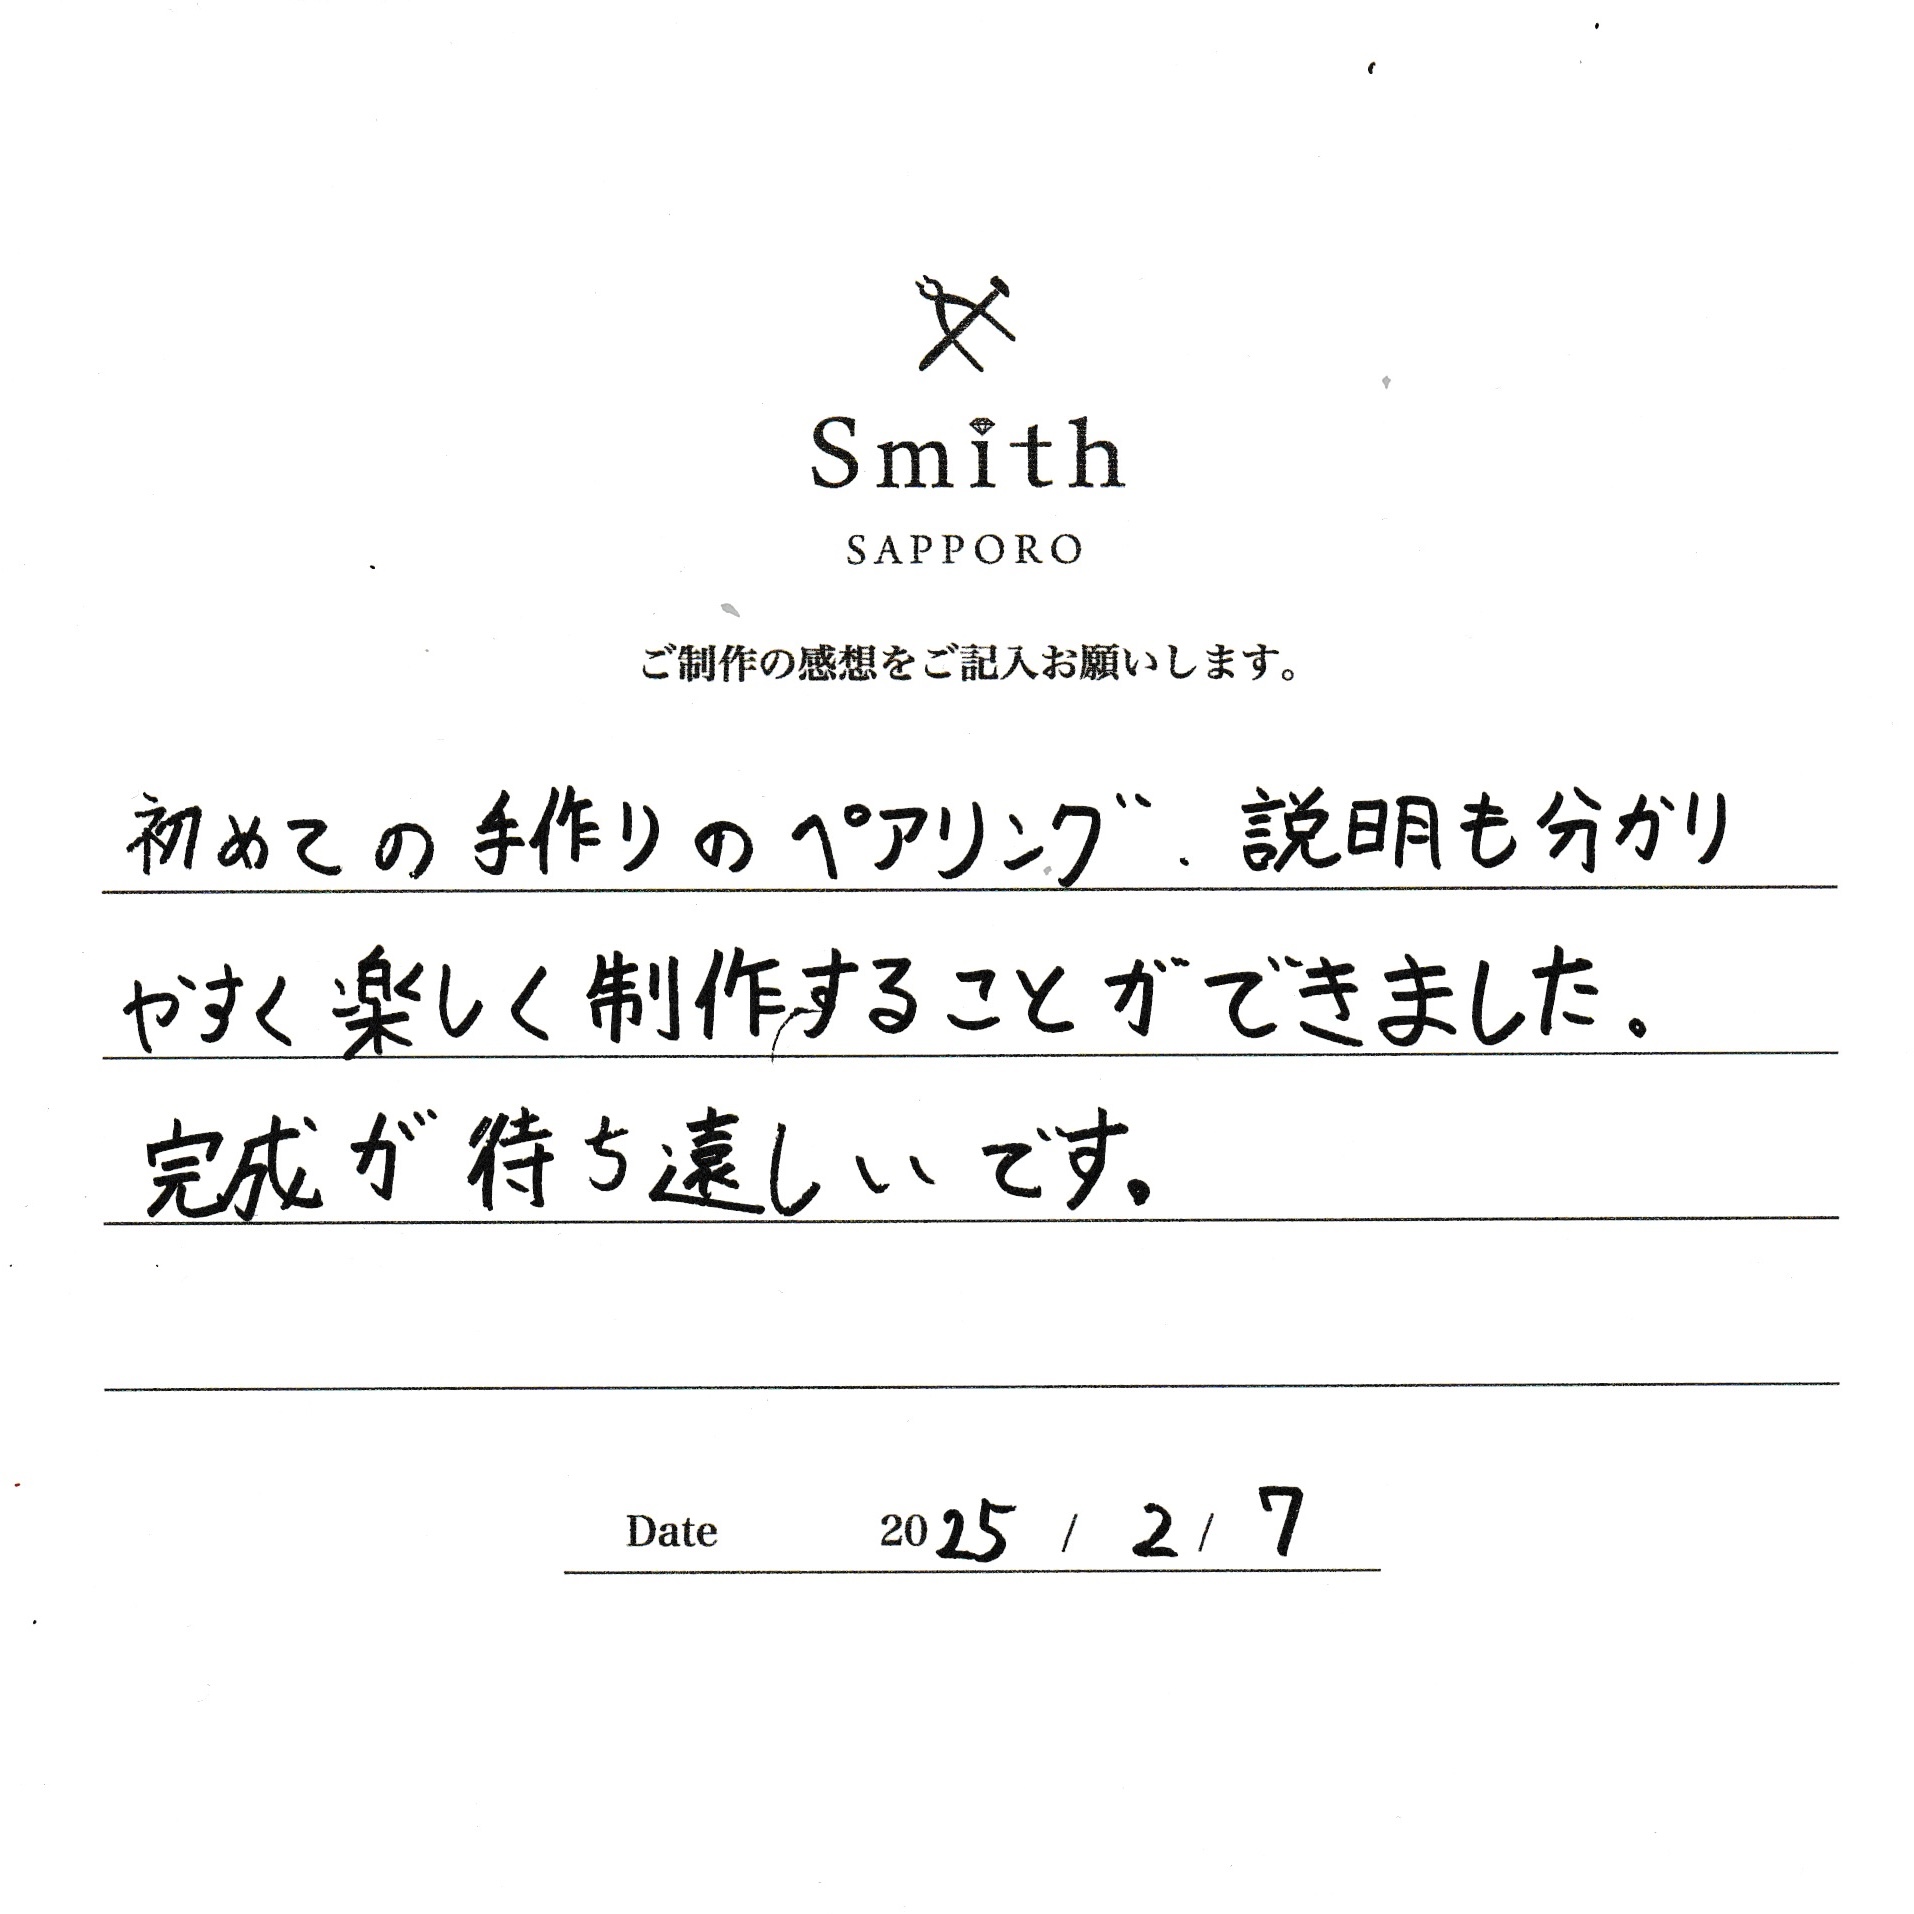 Smith
SAPPORO
ご制作の感想をご記入お願いします。
初めての手作りのペアリング、説明も分かり
やすく楽しく制作することができました。
完成が待ち遠しいです。
Date 2025 / 2 / 7